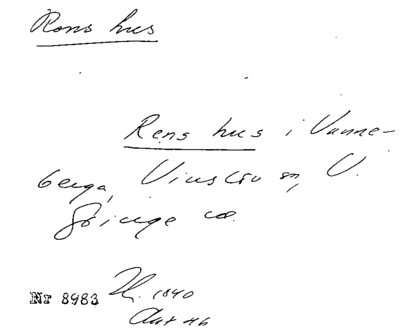 Rens hus
Rens hus i Vanne-
berga, Vinslöv sn, V.
Göinge hd.
Nr 8983 1840